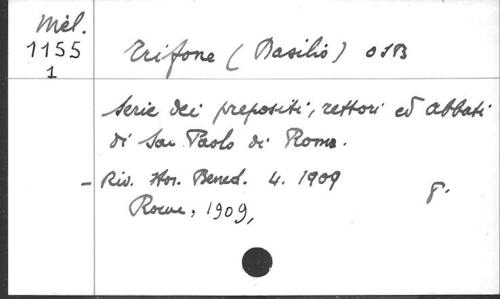 Mél.
1155
1
Trifone (Basilio) OSB
Serie dei prepositi, rettori ed abbati
di San Paolo di Roma.
- Riv. stor. Bened. 4. 1909
8.
Rome, 1909,